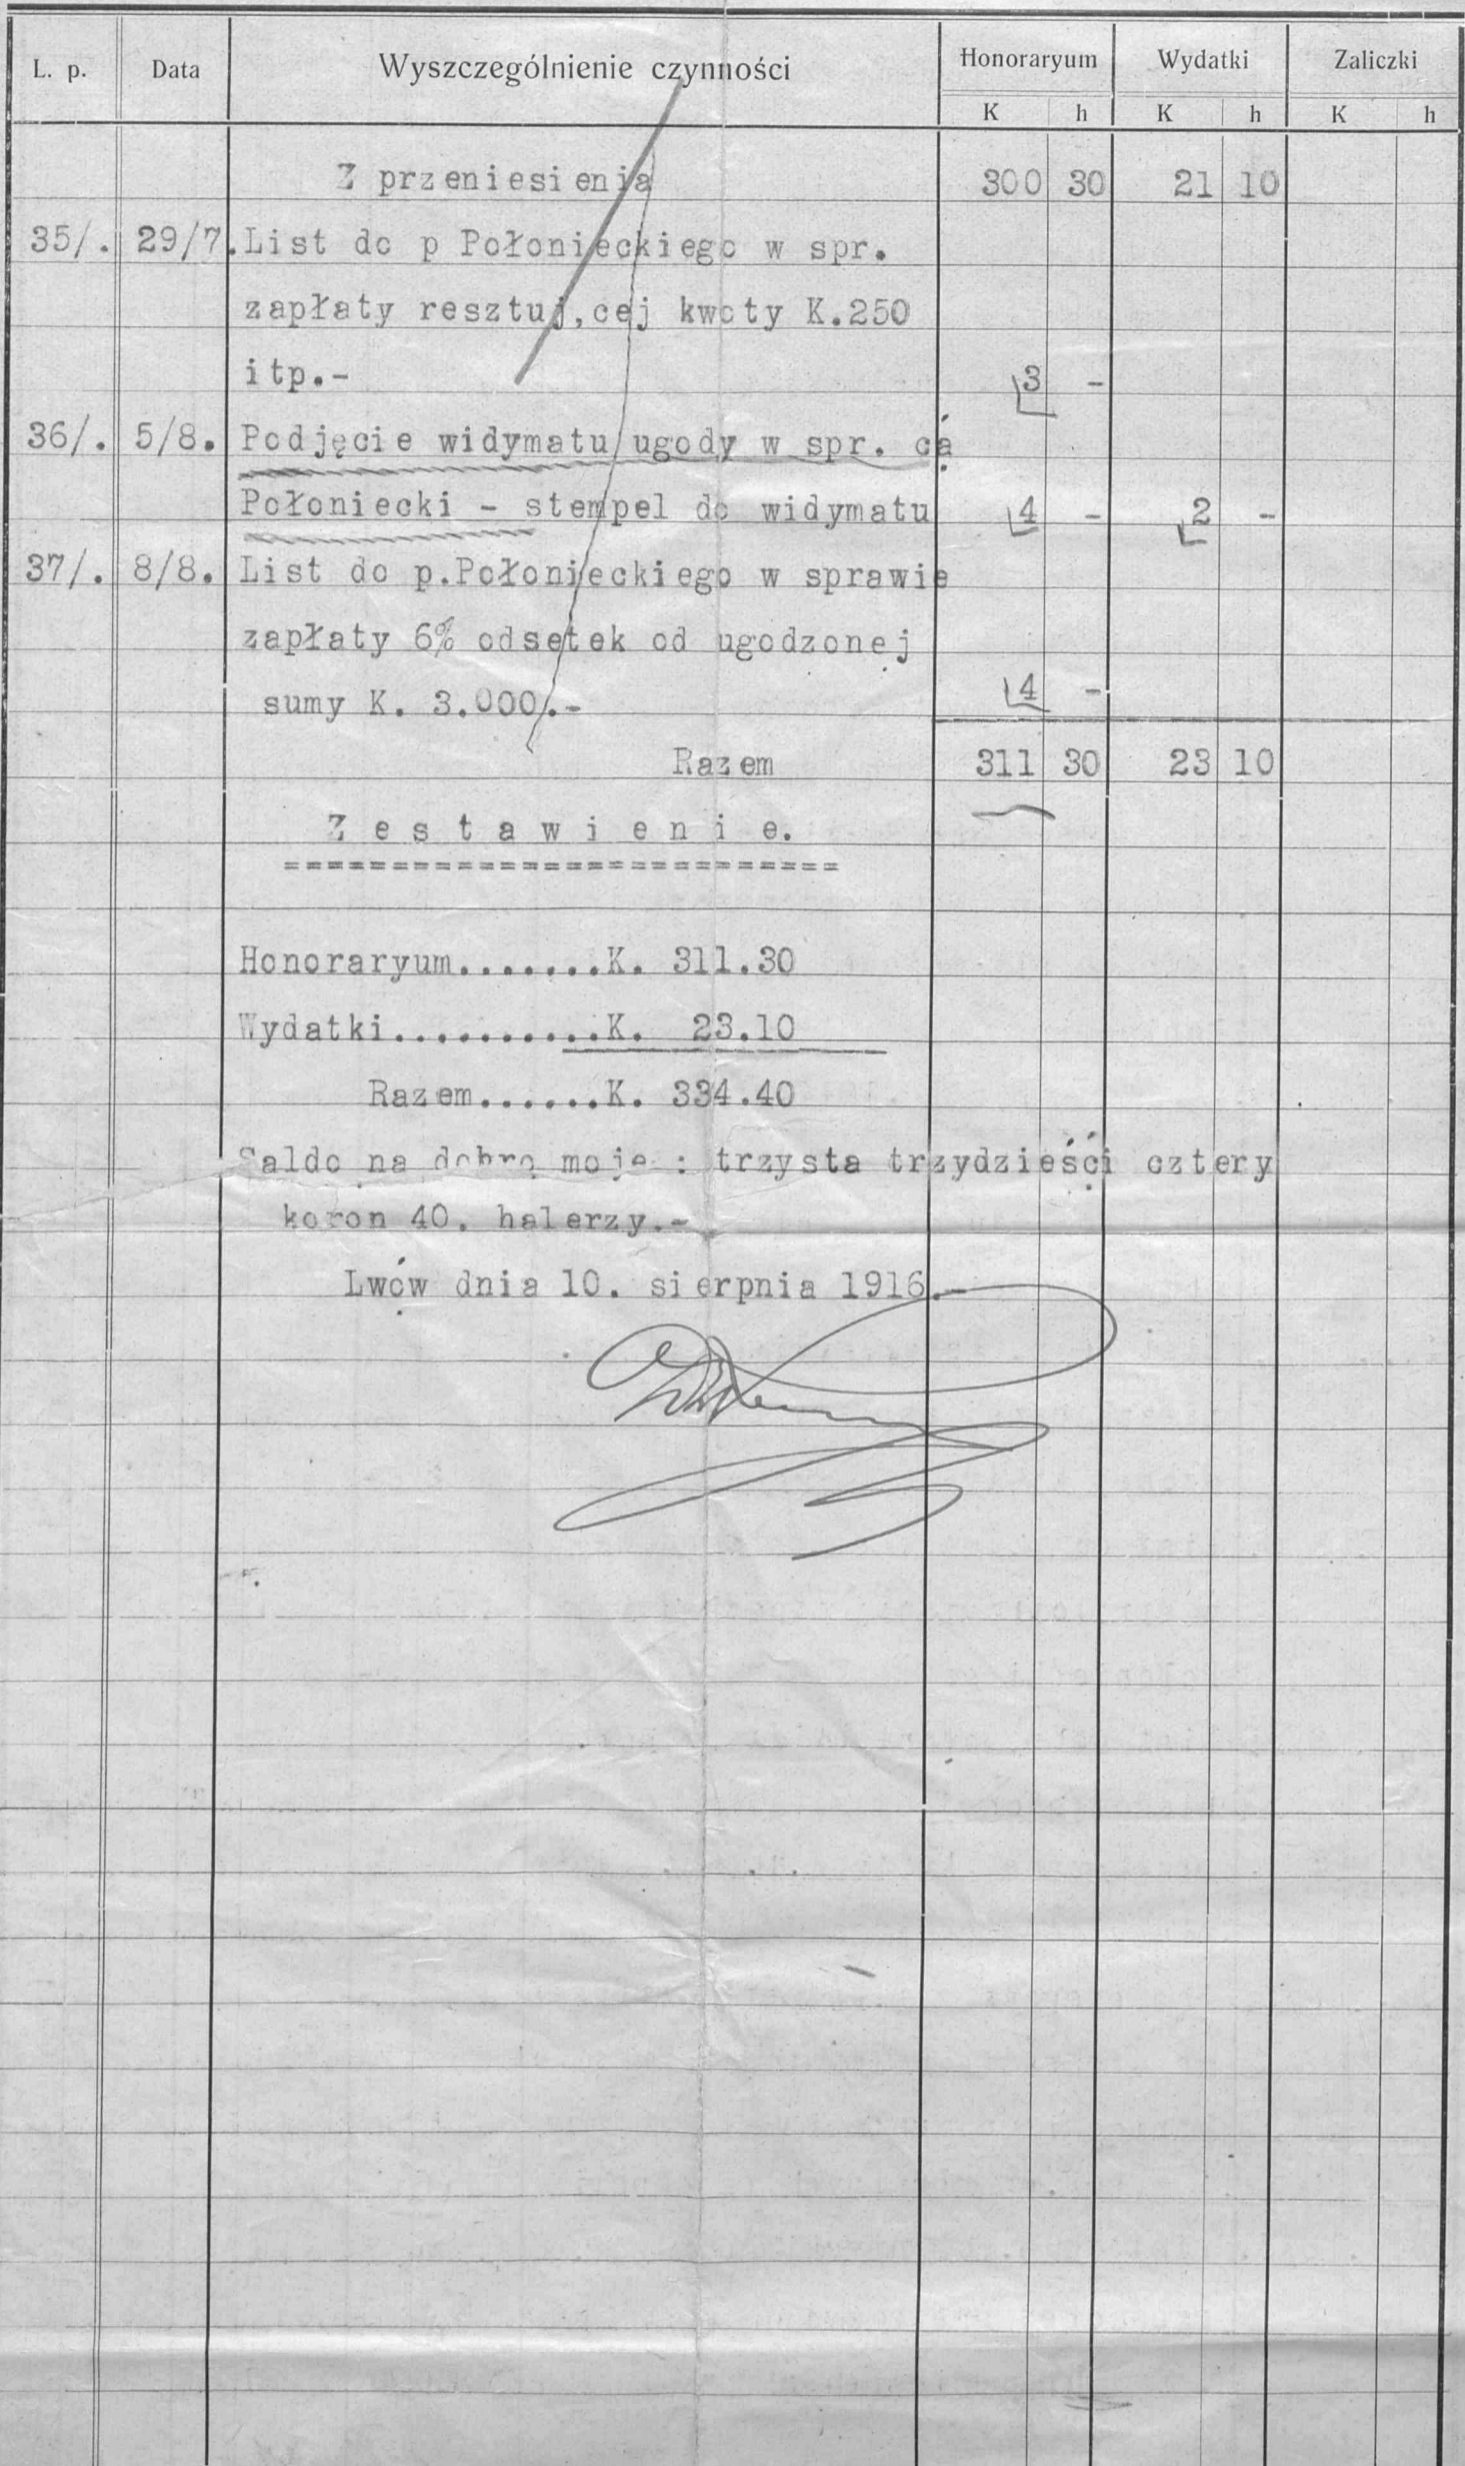 L. p. Data Wyszczególnienie czynności Honoraryum Wydatki Zaliczki
K h K h K h
Z przeniesienia 300 30 21 10
35/. 29/7. List do p Połonieckiego w spr.
zapłaty resztuj,cej kwoty K.250
itp.- 3 -
36/. 5/8. Podjęcie widymatu ugody w spr. cá
Połoniecki - stempel do widymatu 4 - 2 -
37/. 8/8. List do p.Połonieckiego w sprawie
zapłaty 6% odsetek od ugodzonej
sumy K. 3.000.- 4 -
Razem 311 30 23 10
Z e s t a w i e n i e.
==========================
Honoraryum.......K. 311.30
Wydatki..........K. 23.10
Razem......K. 334.40
Saldo na dobro moje : trzysta trzydzieści cztery
koron 40. halerzy.-
Lwów dnia 10. sierpnia 1916.-